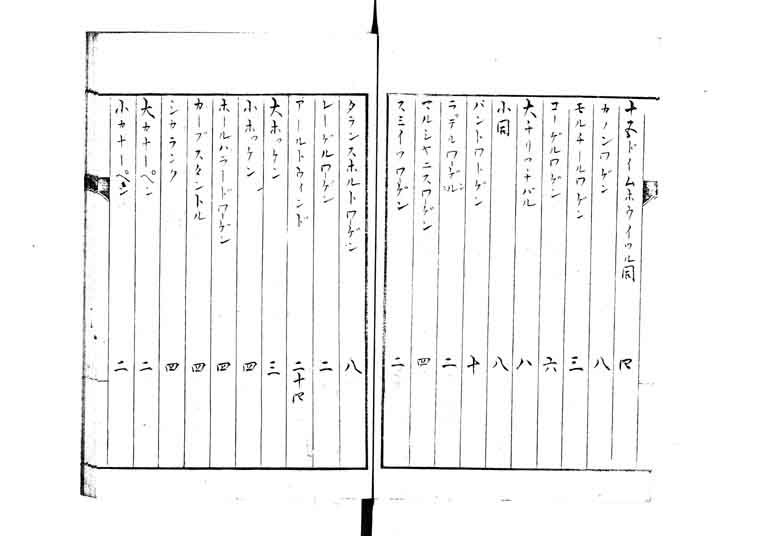 十五ドイムホウイツル同 四
カノンワゲン 八
モルチールワゲン 三
コーゲルワゲン 六
大チリフチバル 八
小同 八
パントワトゲン 十
ラデルワーゲル 二
マルシヤニスワーゲン 四
スミイフワーゲン 二
タランスホルトワーゲン 八
レーゲルワーゲン 二
アールトウィンド 二十四
大ホッケン 三
小ホッケン 四
ホールハラードワーゲン 四
カープスタントル 四
シカランク 四
大カナーペン 二
小カナーペン 二